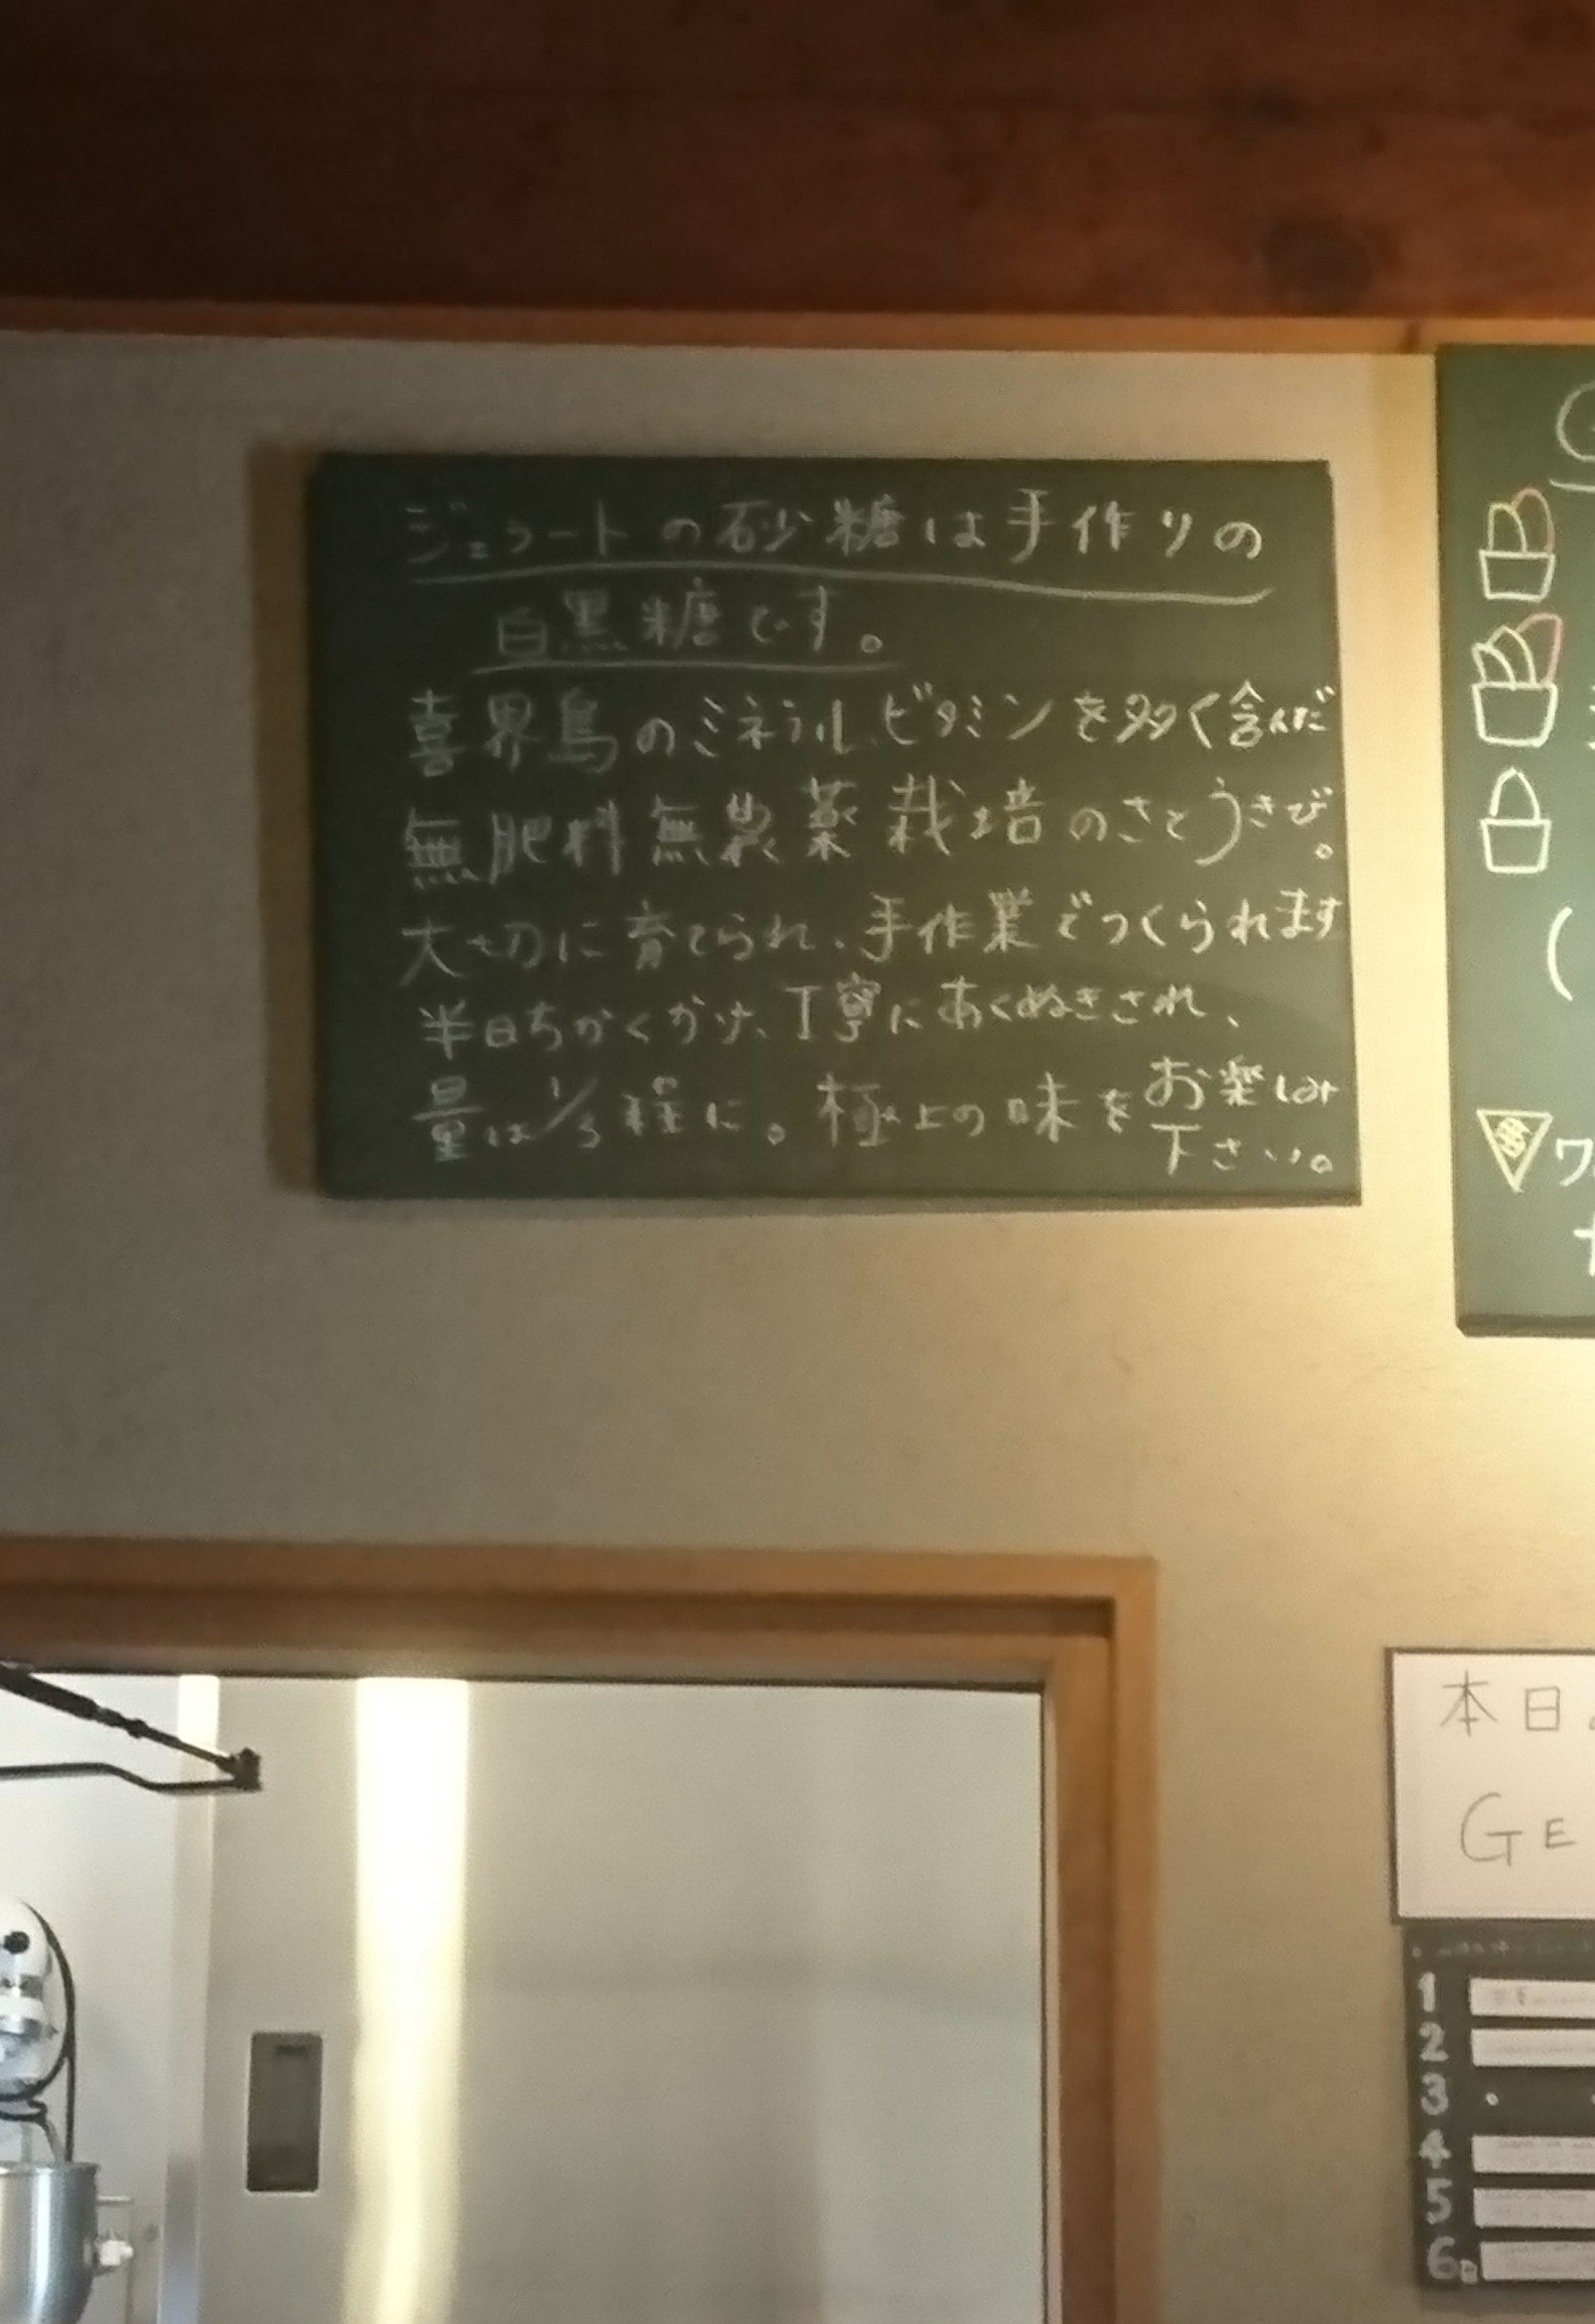 ジェラートの砂糖は手作りの
白黒糖です。
喜界島のミネラル、ビタミンを多く含んだ
無肥料無農薬栽培のさとうきび。
大切に育てられ、手作業でつくられます
半日ちかくかけ、丁寧にあくぬきされ、
量は1/3程に。極上の味をお楽しみ
下さい。
ワ
本日
GE
1
2
3
4
5
6